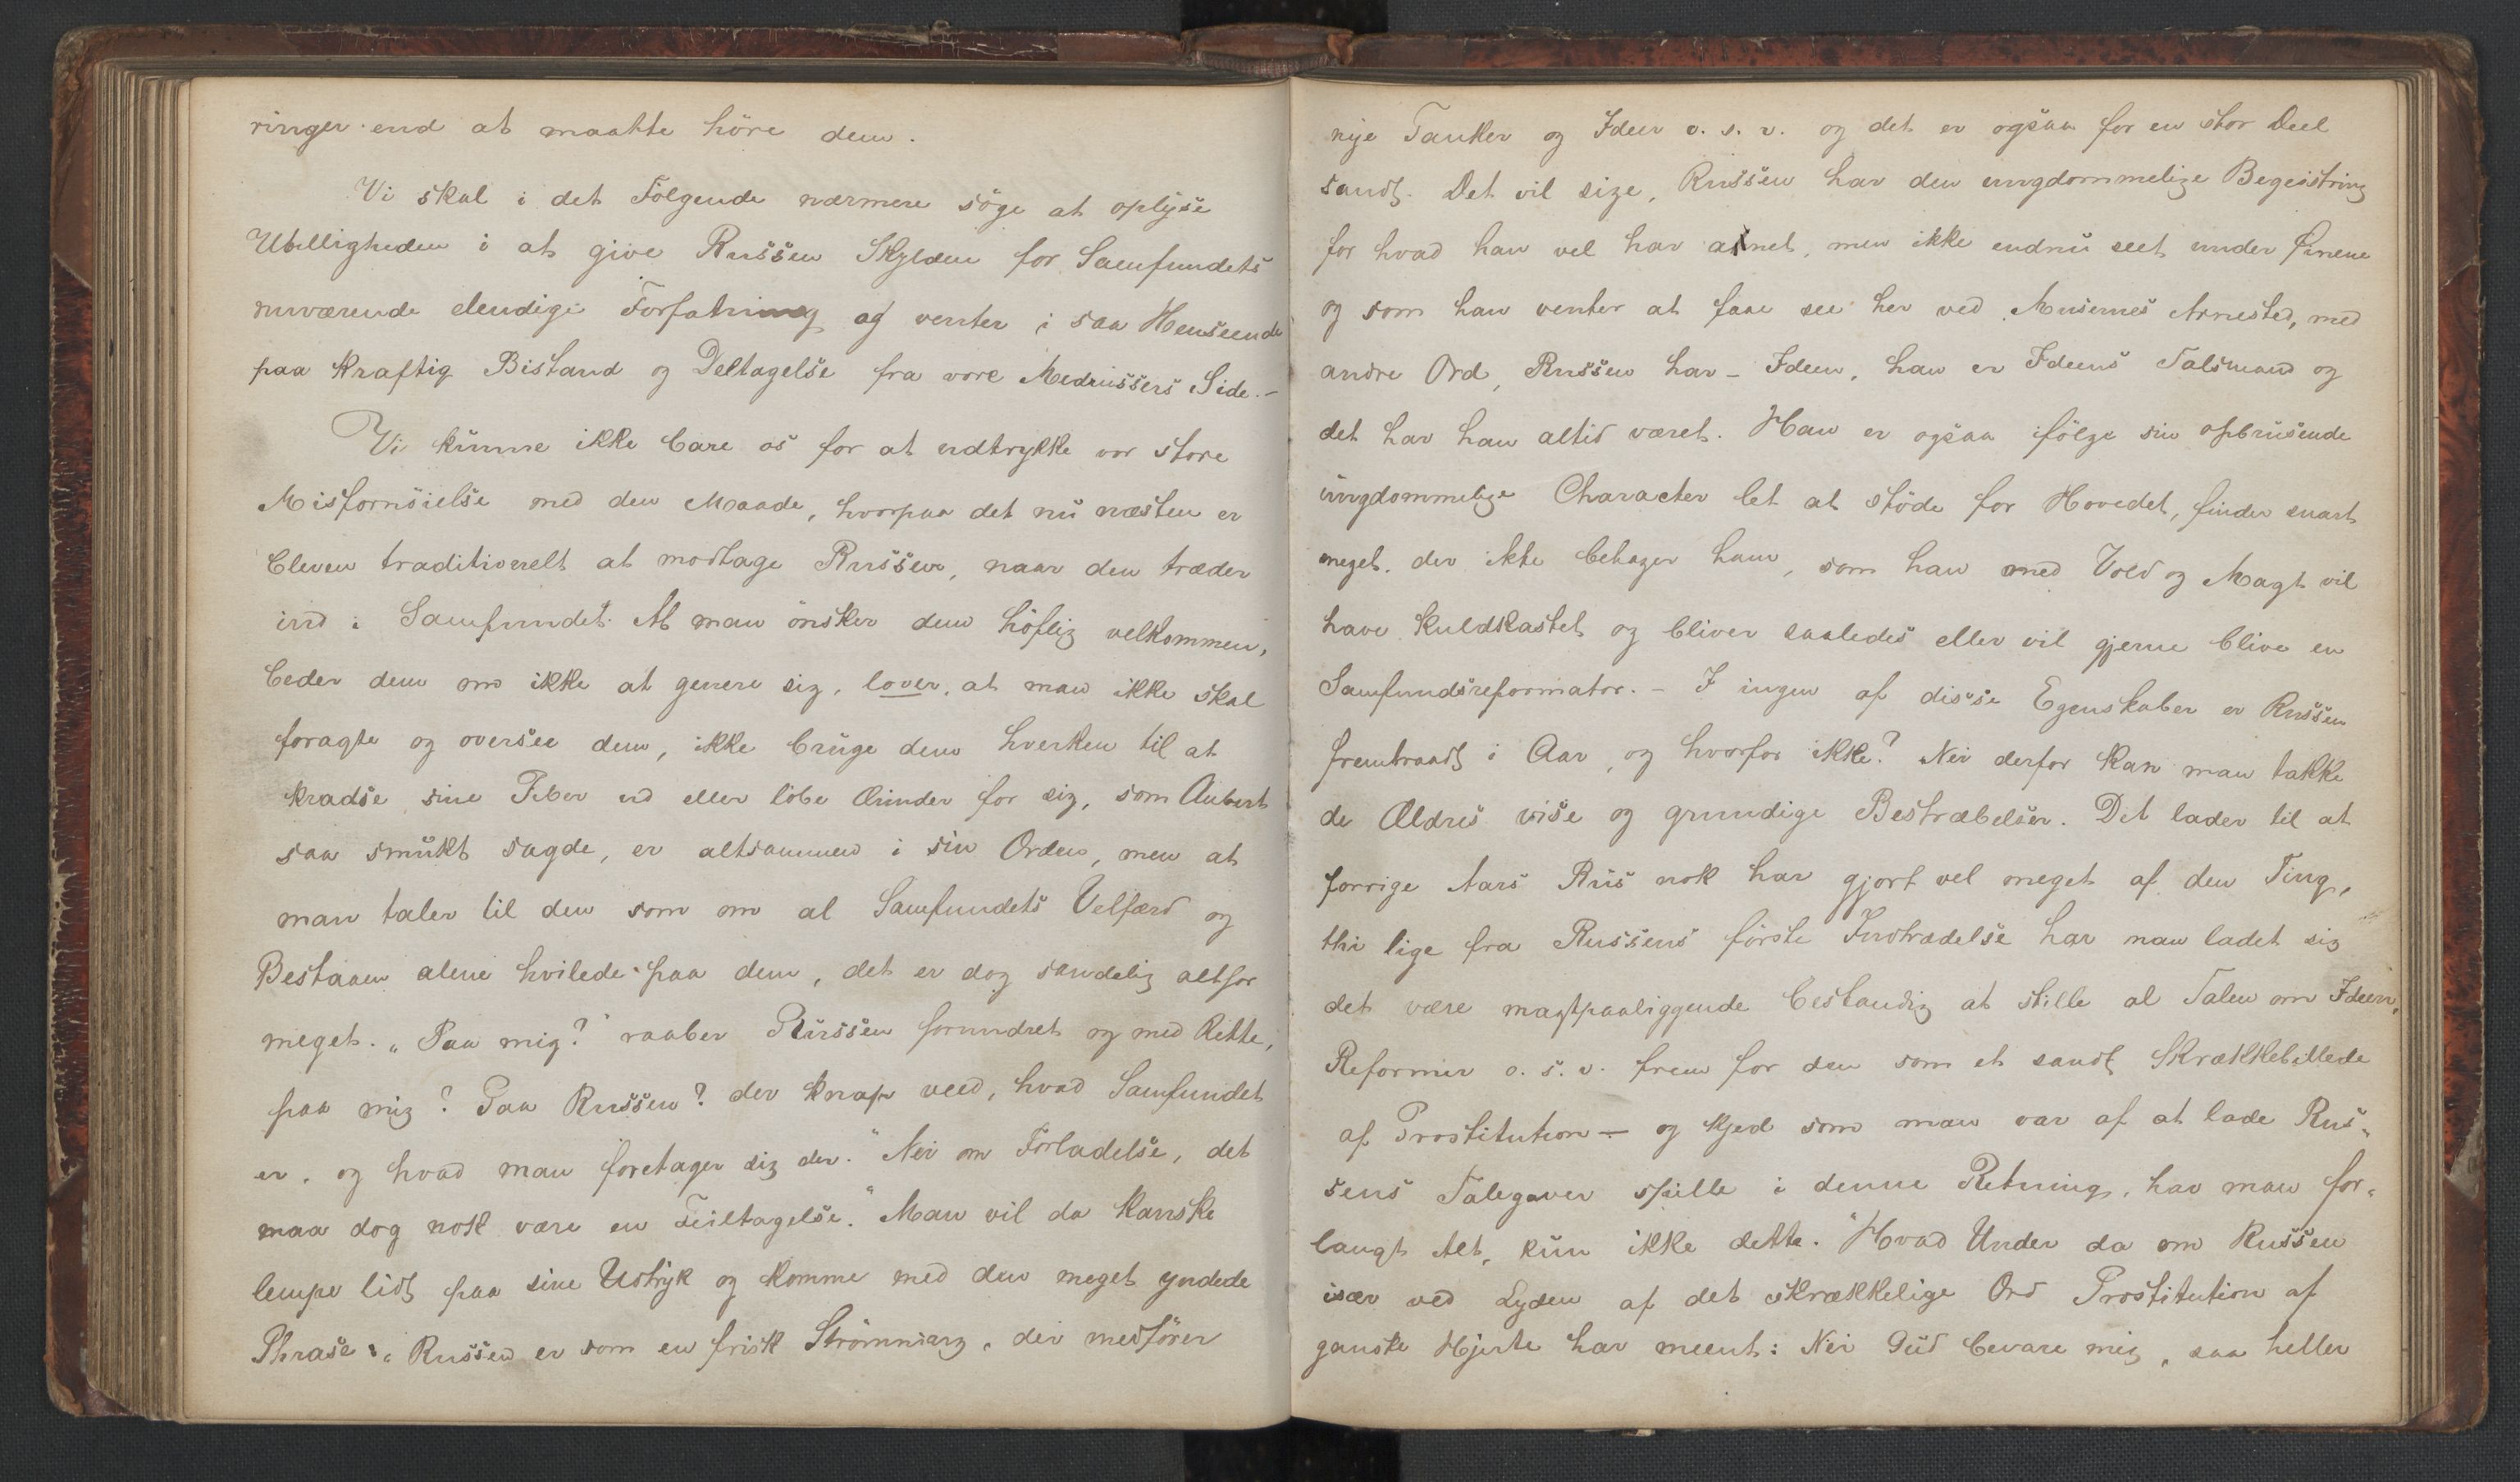 ringer end at maatte höre dem.
Vi skal i det Fölgende nærmere söge at oplyse
Ubilligheden i at give Russen Skylden for Samfundets
nuværende elendige Forfatning og venter i saa Henseende
paa kraftig Bistand og Deltagelse fra vore Medrussers Side.-
Vi kunne ikke bare os for at udtrykke vor store
Misfornöielse med den Maade, hvorpaa det nu næsten er
bleven traditionelt at modtage Russen, naar den træder
ind i Samfundet. At man önsker dem höflig velkommen,
beder dem om ikke at genere sig, lover, at man ikke skal
foragte og oversee dem, ikke bruge dem hverken til at
kradse sine Piber ud eller löbe Ærinder for sig, som Aubert
saa smukt sagde, er altsammen i sin Orden, men at
man taler til den som om al Samfundets Velfærd og
Bestaaen alene hvilede paa dem, det er dog sandelig altfor
meget. „Paa mig?" raaber Russen forundret og med Rette,
paa mig? Paa Russen? der knap veed, hvad Samfundet
er, og hvad man foretager sig der." Nei om Forladelse, det
maa dog nok være en Feiltagelse." Man vil da kanske
lempe lidt paa sine Udtryk og komme med den meget yndede
Phrase: „Russen er som en frisk Strömning, der medförer
nye Tanker og Ideer o. s. v. og det er ogsaa for en stor Deel
sandt. Det vil sige, Russen har den ungdommelige Begeistring
for hvad han vel har anet, men ikke endnu seet under Öinene
og som han venter at faae see her ved Musernes Arnested, med
andre Ord, Russen har - Ideen, han er Ideens Talsmand og
det har han altid været. Han er ogsaa ifölge sin opbrusende
ungdommelige Character let at stöde for Hovedet, finder snart
meget, der ikke behager ham, som han med Vold og Magt vil
have kuldkastet og bliver saaledes eller vil gjerne blive en
Samfundsreformator. - I ingen af disse Egenskaber er Russen
fremtraadt i Aar, og hvorfor ikke? Nei derfor kan man takke
de Ældres vise og grundige Bestræbelser. Det lader til at
forrige Aars Rus nok har gjort vel meget af den Ting,
thi lige fra Russens förste Indtrædelse har man ladet sig
det være magtpaaliggende bestandig at stille al Talen om Ideen,
Reformer o. s. v. frem for den som et sandt Skrækkebillede
af Prostitution - og kjed som man var af at lade Rus-
sens Talegaver spille i denne Retning, har man for-
langt Alt, kun ikke dette. Hvad Under da om Russen
især ved Lyden af det skrækkelige Ord Prostitution af
ganske Hjerte har meent: Nei Gud bevare mig, saa heller